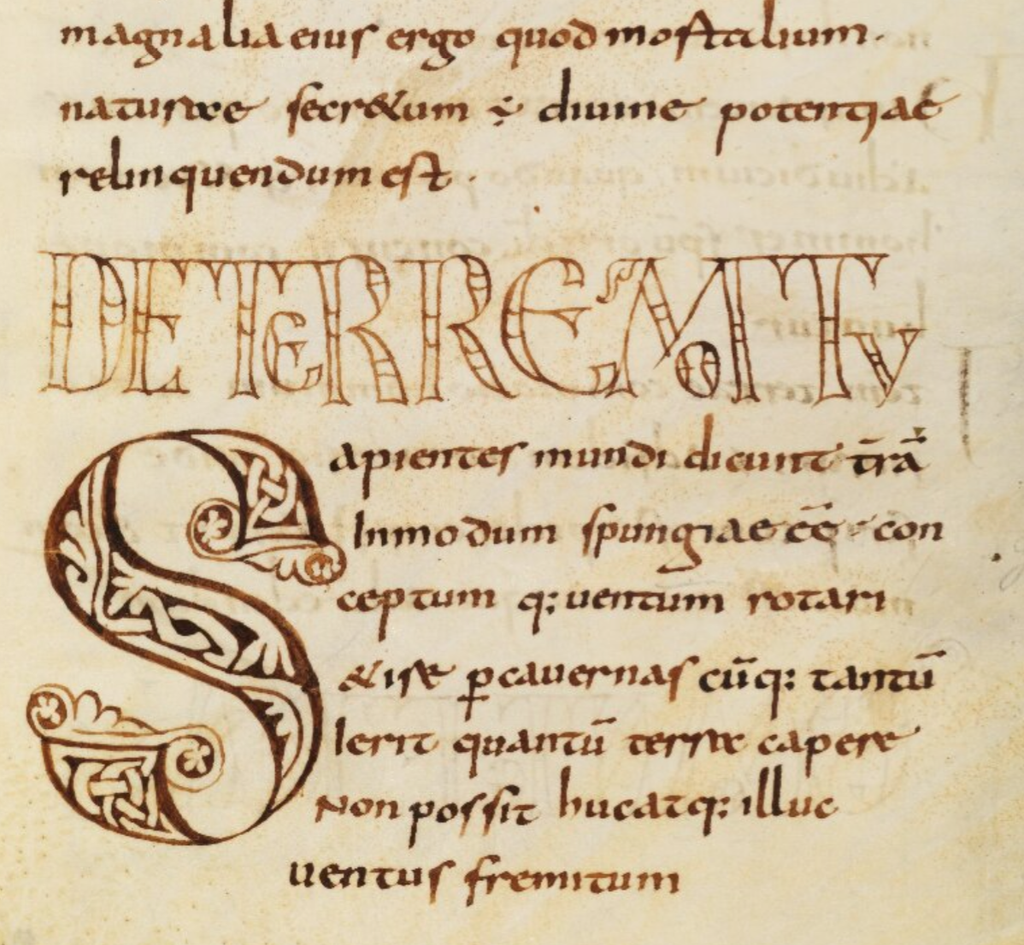 magnalia eius ergo quod mortalium.
naturae secr&um ÷ diuine potentiae
relinquendum est.
DE TERRE MOTU
Sapientes mundi dicunt t̄rā
Inmodum spungiae eē̄ con
ceptumq; uentum rotari
&ire ꝑ cauernas cūq; tantū
ierit quantū terrae capere
Non possit huc atq; illuc
uentus fremitum